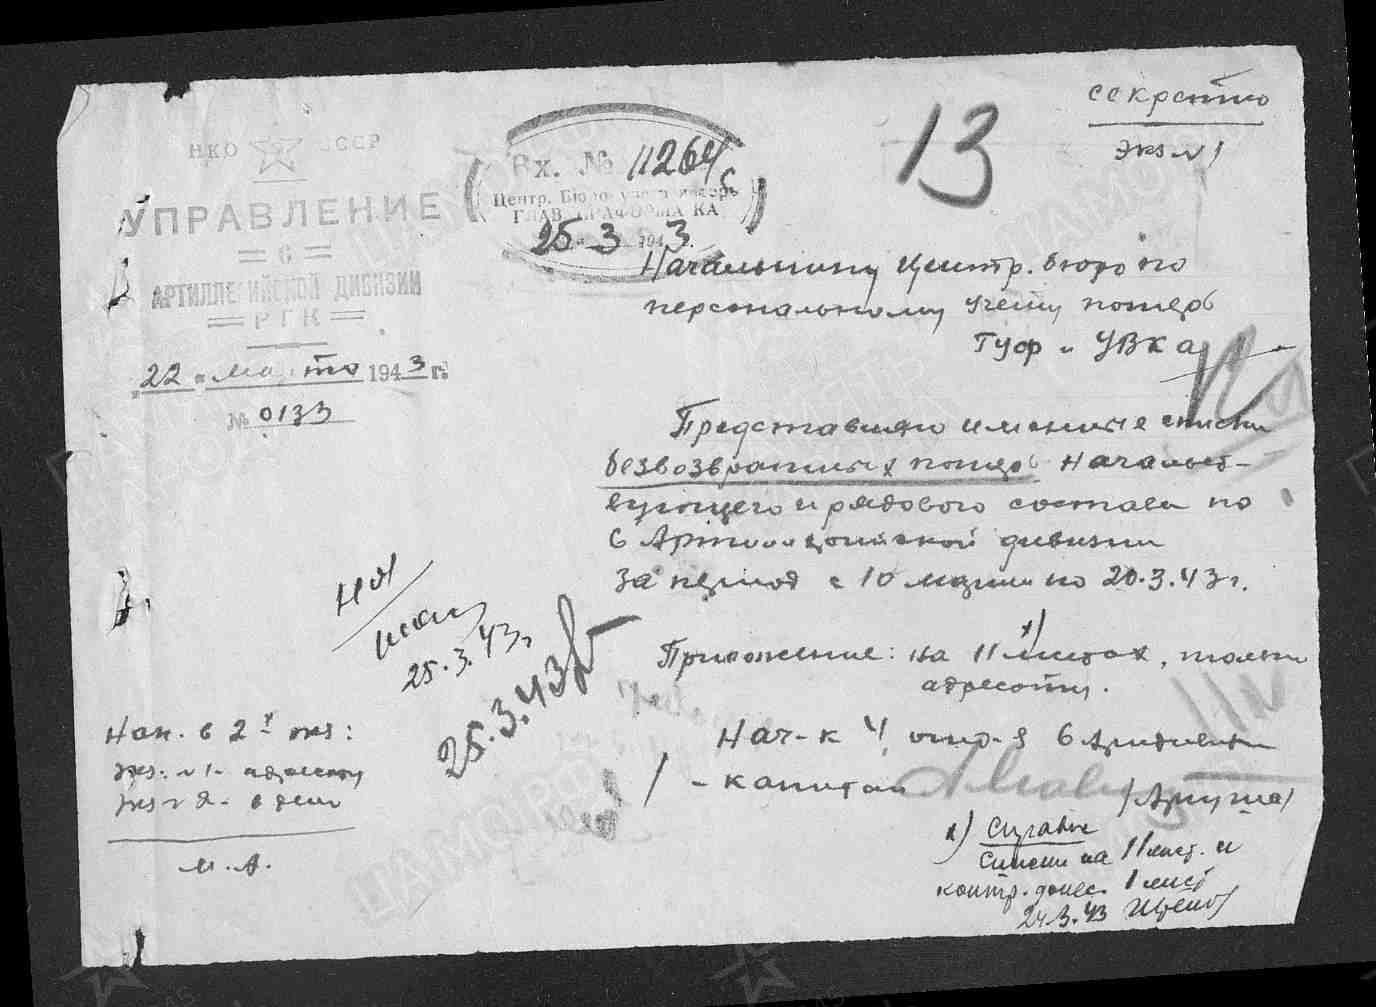 секретно
экз № 1
13
НКО СССР
УПРАВЛЕНИЕ
6
АРТИЛЛЕРИЙСКОЙ ДИВИЗИИ
РГК
"22" марта 1943 г.
№ 0133
Вх. № 11264с
Центр. Бюро учета потерь
ГЛАВУПРАФОРМА КА
25 - 3 1943.
Начальнику Центр. бюро по
персональному учету потерь
ГУФ и УВКа
Представляю именные списки
безвозвратных потерь начальст-
вующего и рядового состава по
6 Артиллерийской дивизии
за период с 10 марта по 20.3.43 г.
Приложение: на 11 листах, только
адресату.
Нач-к 4 отд-я 6 Артдивизии
- капитан
х) Справка
Списки на 11 лист. и
контр. донес. 1 лист
24.3.43
25.3.43 г
25.3.43
Нап. в 2х экз:
экз. № 1 - адресату
экз № 2 - в дело
м. А.